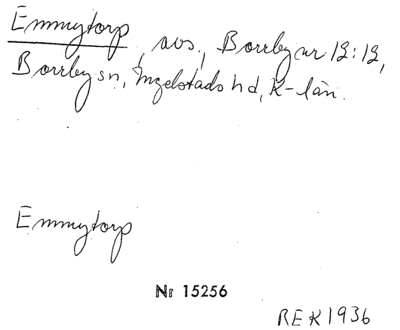 Emmytorp, avs., Borrby nr 12:12,
Borrby sn, Ingelstads hd, K-län.
Emmytorp
Nr 15256
REK 1936